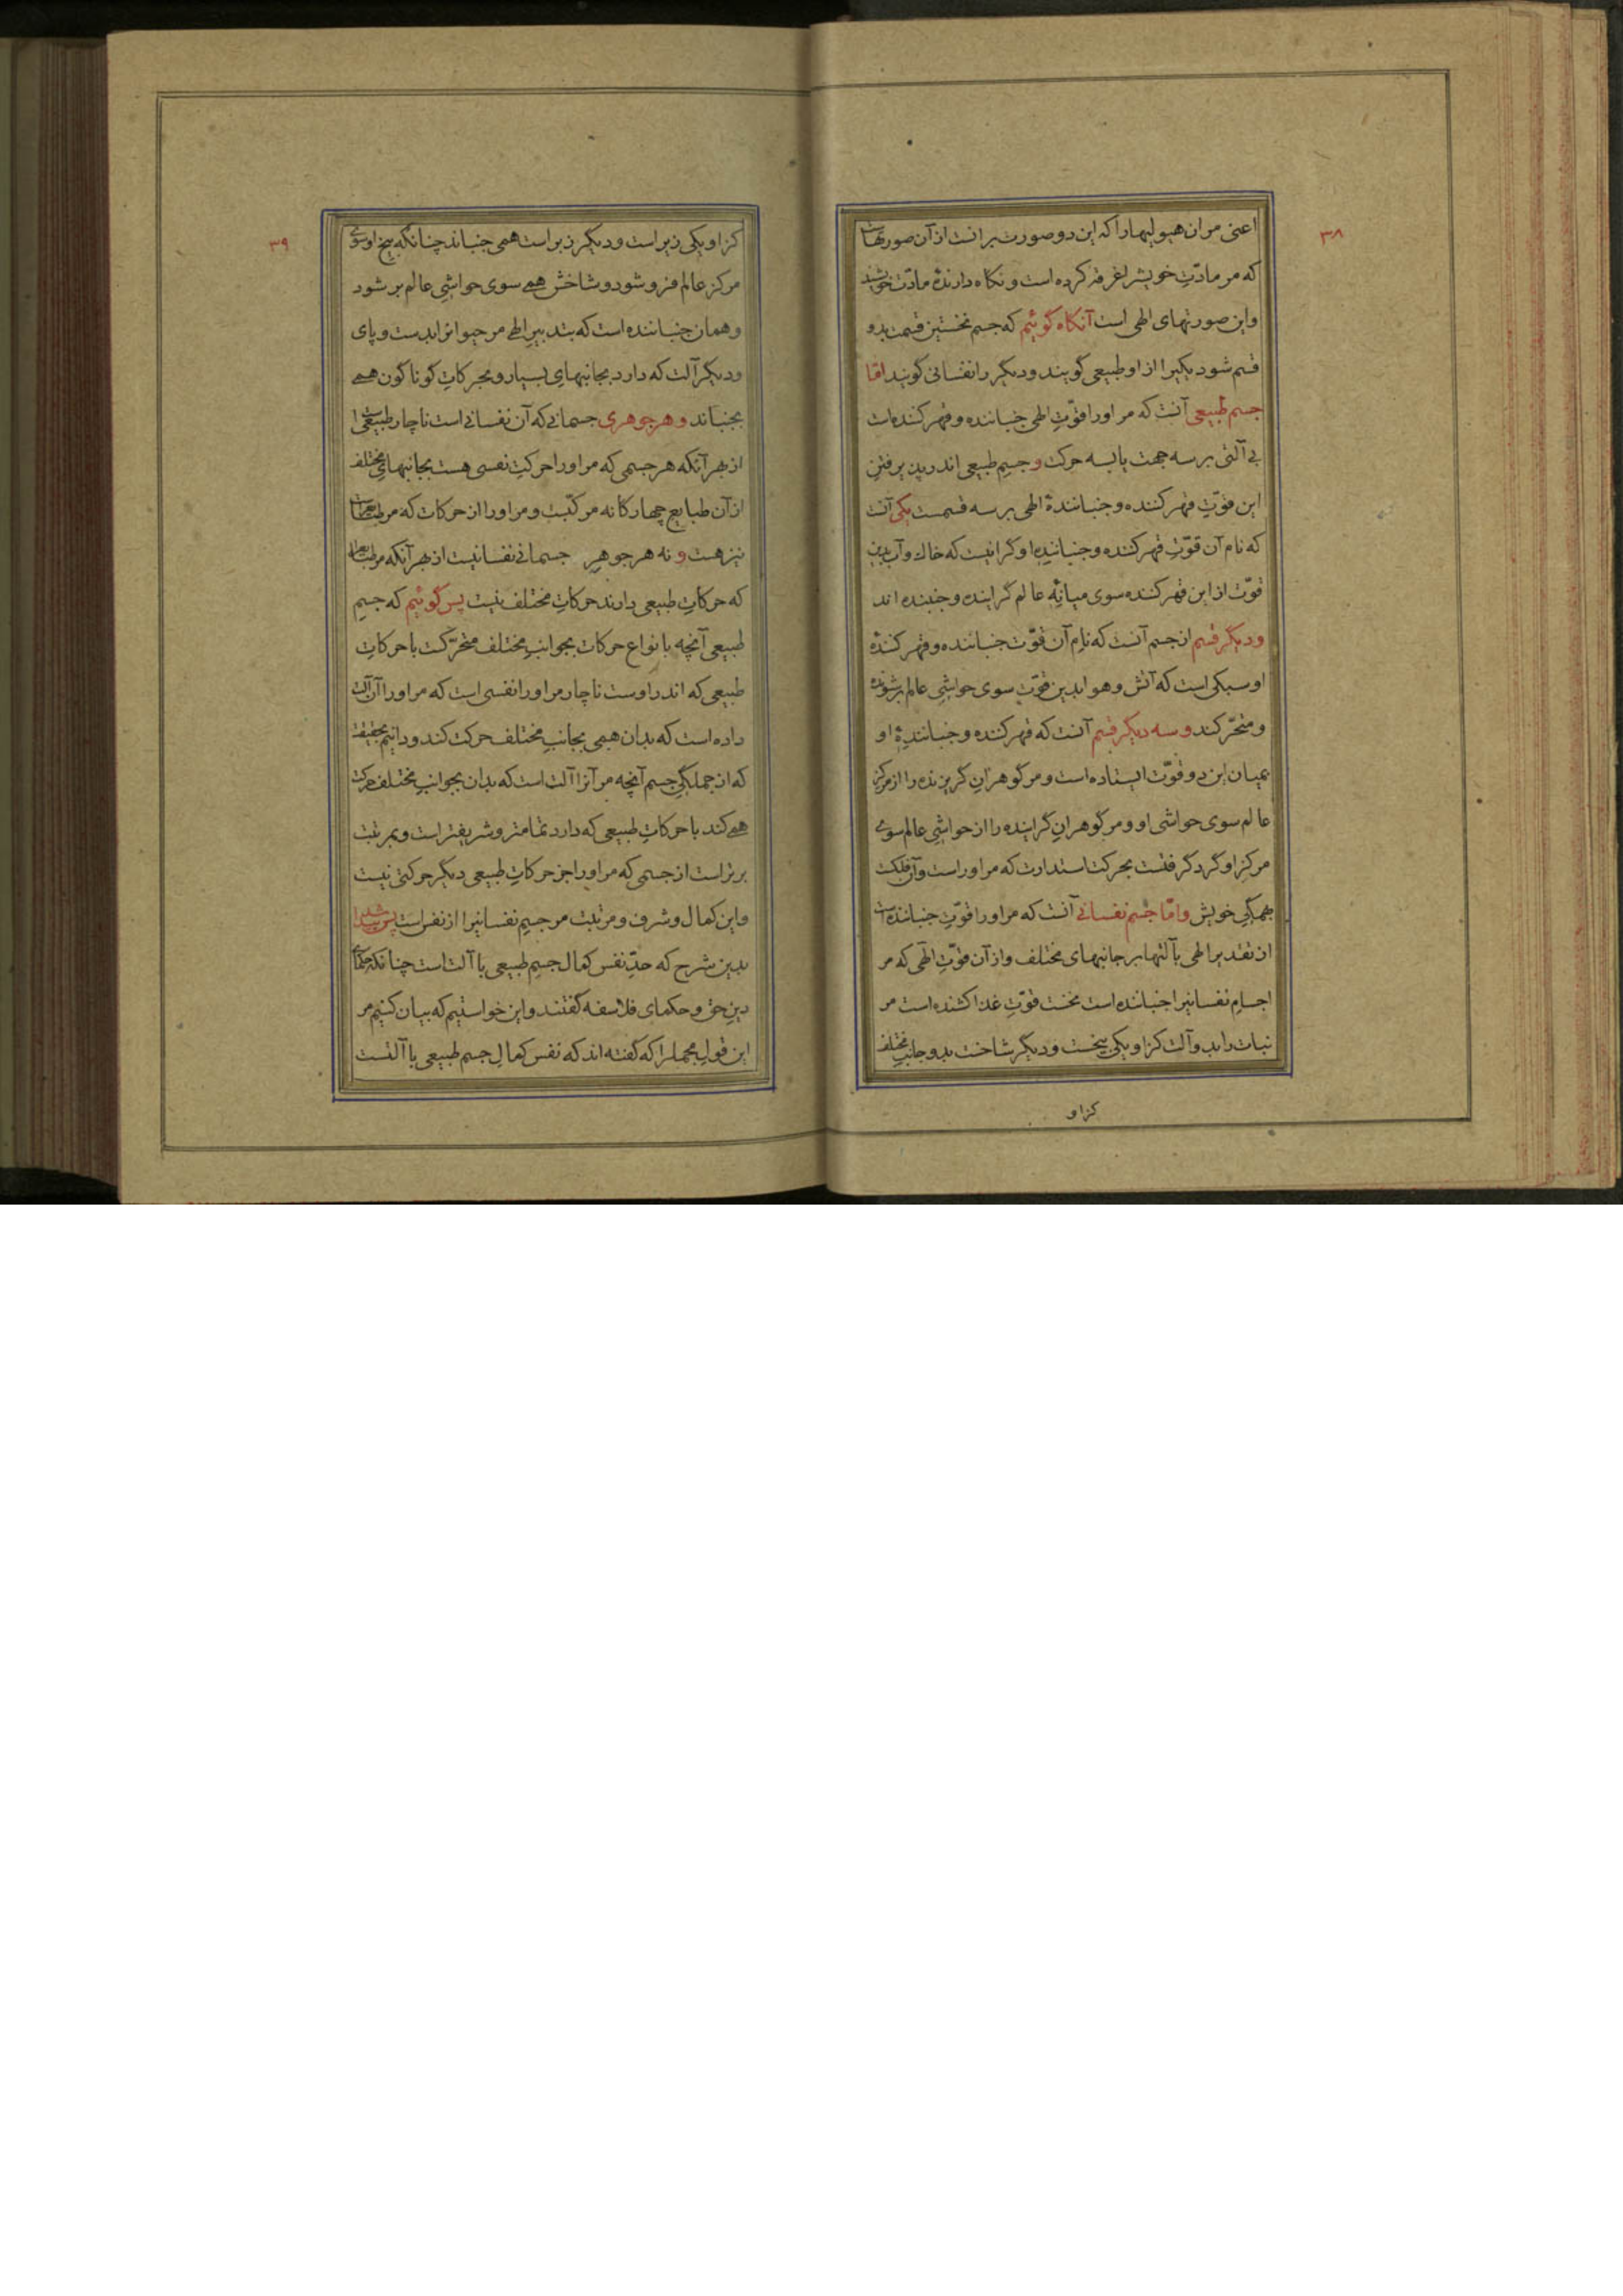 ۳۸
اعنی مر ان هیولیها را که این دو صورت بر انست از آن صورتهاست
که مر مادّتِ خویش را غرقه کرده است و نگاه دارندهٔ مادّت خویشند
و این صورتهای الهی است آنگاه گوئیم که جسم نخستین قسمت بدو
قسم شود یکیرا از او طبیعی گویند و دیگر را نفسانی گویند امّا
جسم طبیعی آنست که مر او را قوّتِ الهی جنباننده و قهر کننده است
بی آلتی بر سه جهت یا بسه حرکت و جسمِ طبیعی اندر پذیرفتنِ
این قوّتِ قهر کننده و جنبانندهٔ الهی بر سه قسمست یکی آنست
که نام آن قوّتِ قهر کننده و جنبانندهٔ او گرانیست که خاک و آب بدین
قوّت از این قهر کننده سوی میانهٔ عالم گراینده و جنبنده اند
و دیگر قسم از جسم آنست که نامِ آن قوّت جنباننده و قهر کنندهٔ
او سبکی است که آتش و هوا بدین قوّت سوی حواشیِ عالم بر شونده
و متحرّکند و سه دیگر قسم آنست که قهر کننده و جنبانندهٔ او
بمیان این دو قوّت ایستاده است و مر گوهرانِ گریزنده را از مرکزِ
عالم سوی حواشی او و مر گوهرانِ گراینده را از حواشیِ عالم سوی
مرکزِ او گرد گرفتست بحرکت استدارت که مر او راست و آن فلکست
بهمگیِ خویش و امّا جسم نفسانی آنست که مر او را قوّتِ جنباننده است
از تقدیر الهی بآلتها بر جانبهای مختلف و از آن قوّتِ الهی که مر
اجسامِ نفسانیرا جنباننده است نخست قوّتِ غذا کشنده است مر
نبات را بدو آلت کز او یکی بیخست و دیگر شاخست بدو جانبِ مختلف
کز او
۳۹
کز او یکی زیر است و دیگر زبر است همی جنباند چنانکه بیخ او سوی
مرکز عالم فرو شود و شاخش همی سوی حواشیِ عالم بر شود
و همان جنباننده است که بتدبیرِ الهی مر حیوانرا بدست و پای
و دیگر آلت که دارد بجانبهای بسیار و بحرکاتِ گوناگون همی
بجنباند و هر جوهری جسمانی که آن نفسانی است ناچار طبیعی است
از بهر آنکه هر جسمی که مر او را حرکتِ نفسی هست بجانبهای مختلف
از آن طبایعِ چهارگانه مرکّبست و مر او را از حرکات که مر طبایع راست
نیز هست و نه هر جوهرِ جسمانی نفسانیست از بهر آنکه مر طبایع را
که حرکاتِ طبیعی دارند حرکاتِ مختلف نیست پس گوئیم که جسمِ
طبیعی آنچه بانواع حرکات بجوانبِ مختلف متحرّکست با حرکاتِ
طبیعی که اندر اوست ناچار مر او را نفسی است که مر او را آن آلت
داده است که بدان همی بجانبِ مختلف حرکت کند و دانیم بحقیقت
که از جملگیِ جسم آنچه مر آنرا آلت است که بدان بجوانبِ مختلف حرکت
همی کند با حرکاتِ طبیعی که دارد تمامتر و شریفتر است و بمرتبت
برتر است از جسمی که مر او را جز حرکاتِ طبیعی دیگر حرکتی نیست
و این کمال و شرف و مرتبت مر جسمِ نفسانیرا از نفس است پس پیدا شد
بدین شرح که حدِّ نفس کمال جسمِ طبیعی با آلت است چنانکه حکمای
دینِ حق و حکمای فلاسفه گفتند و این خواستیم که بیان کنیم مر
این قولِ مجمل را که گفته اند که نفس کمالِ جسم طبیعی با آلتست